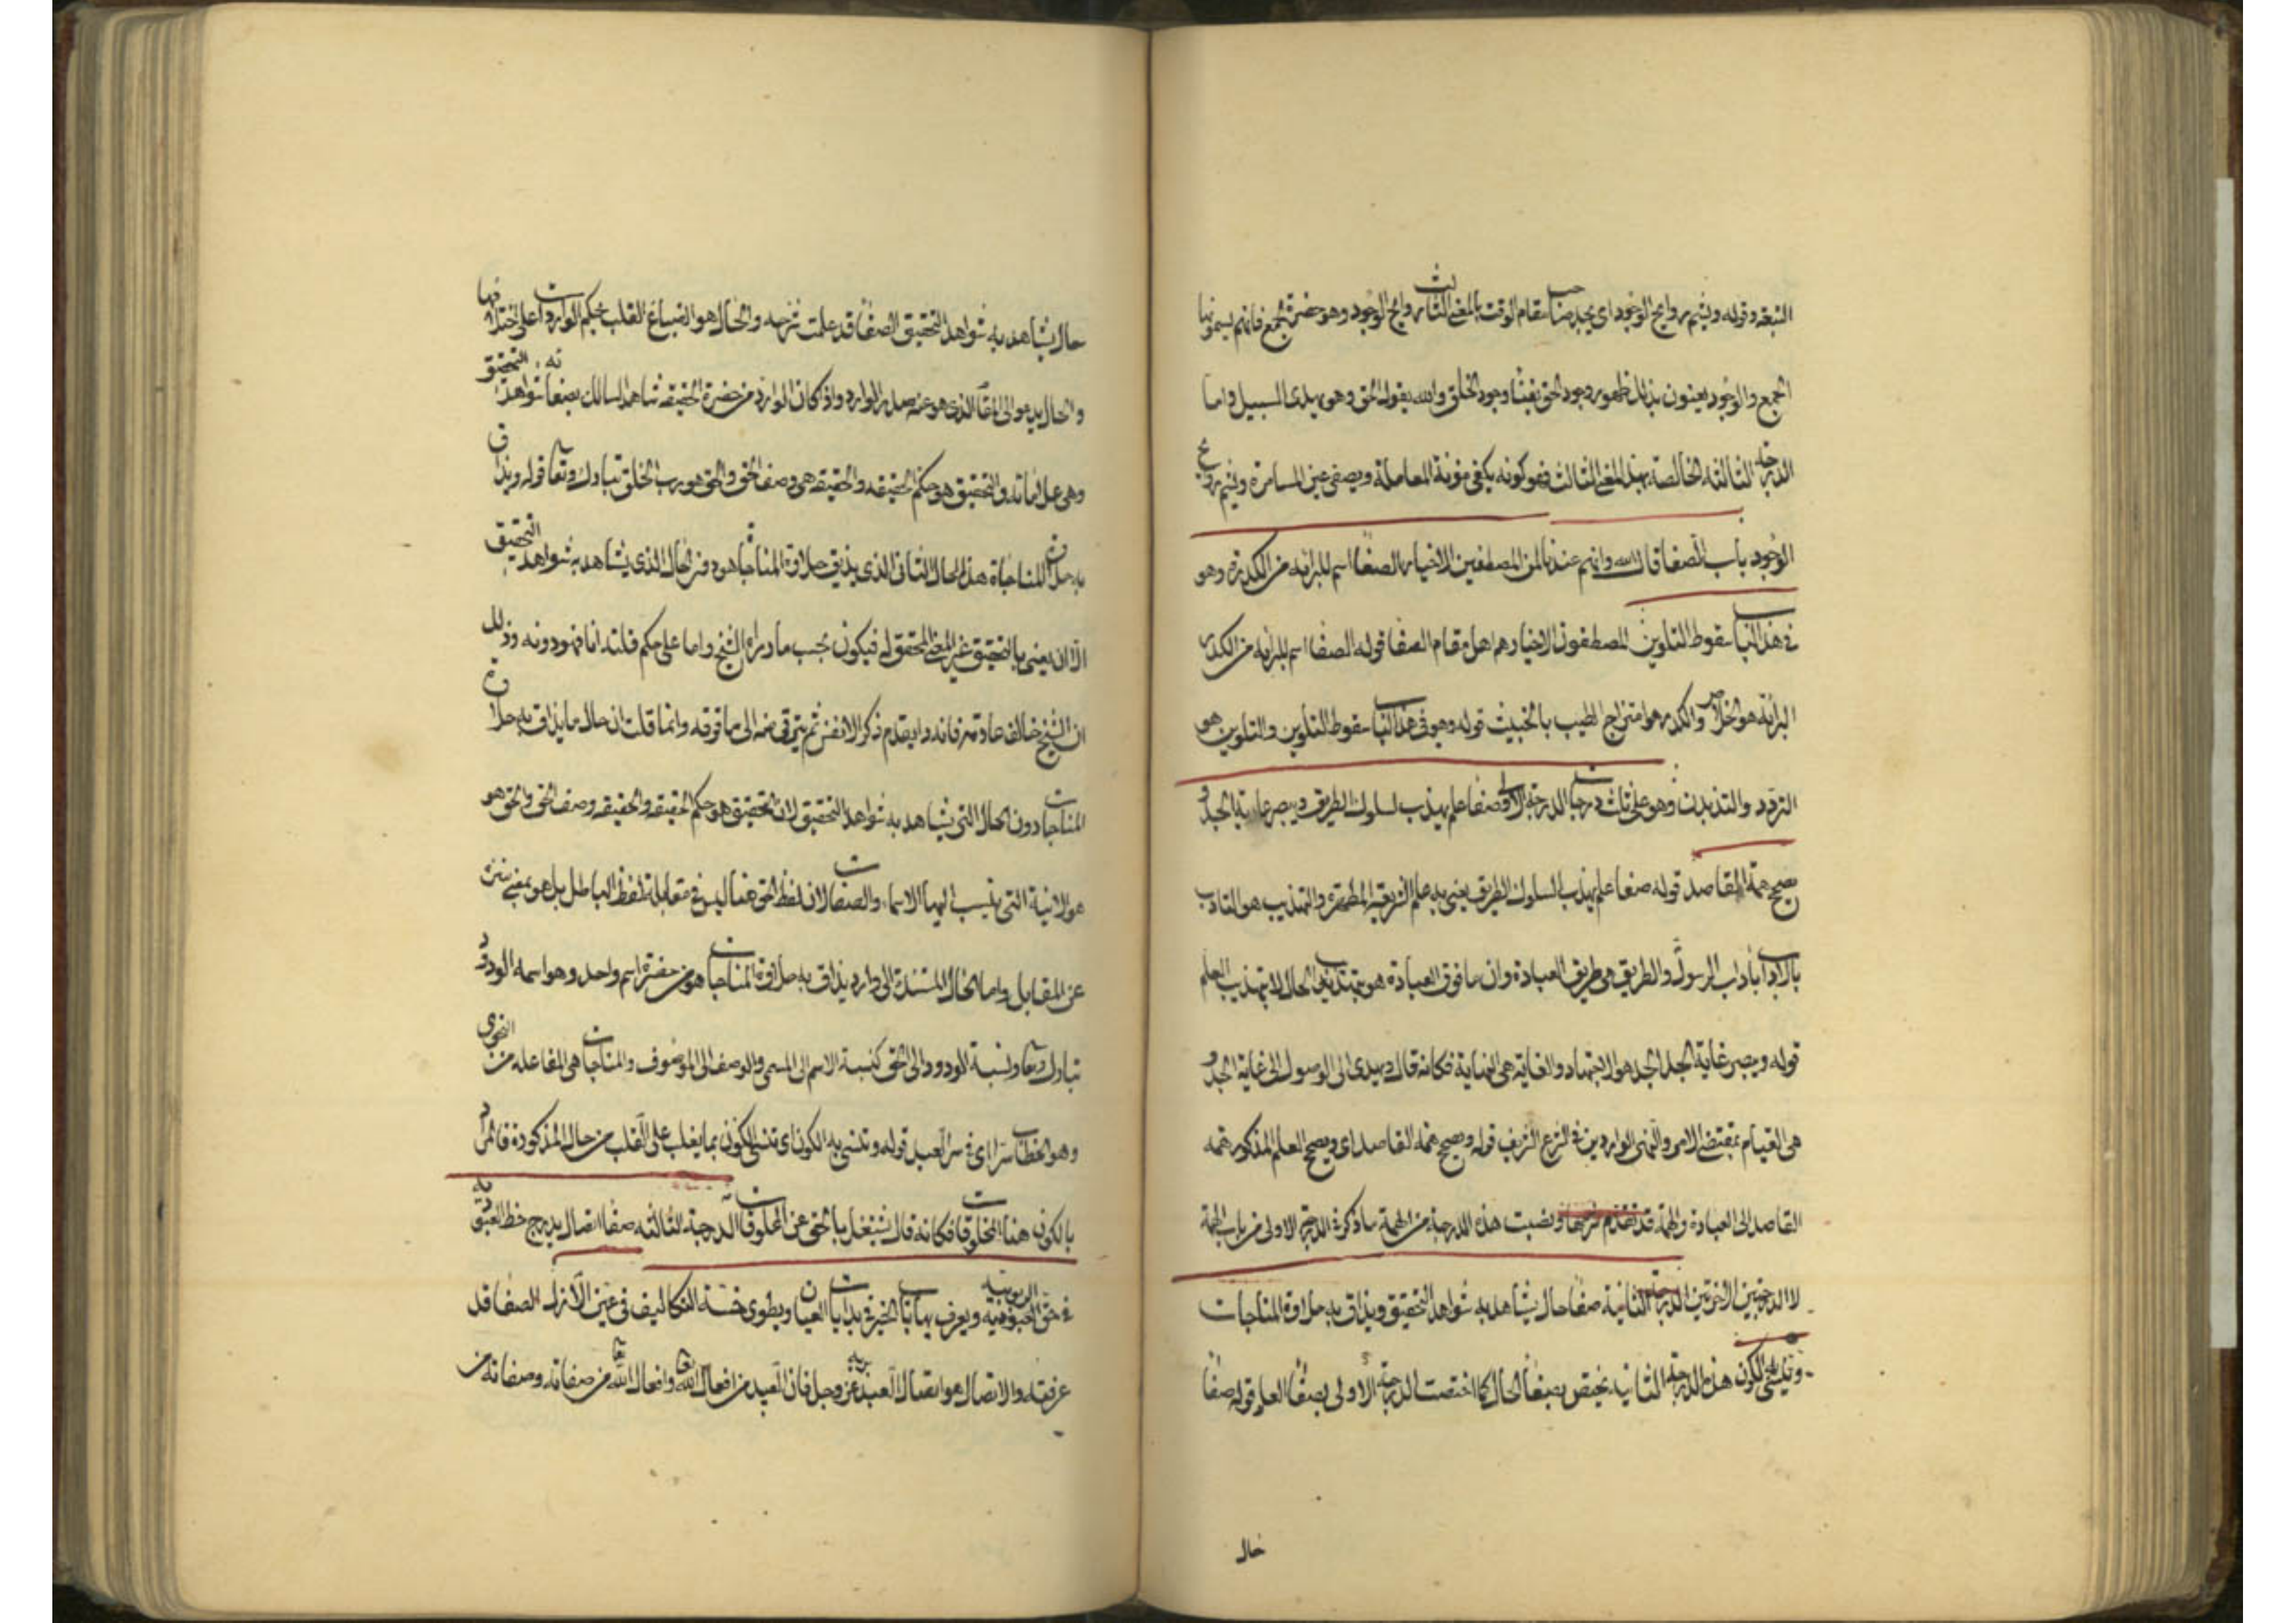 التبعة وقوله ويشم روايح الوجود اى يجد صاحب مقام الوقت بالمعنى الثالث روايح الوجود وهو حضرة الجمع فانهم يسمونها
الجمع والوجود يعنون بذلك ظهور وجود الحق وفناء وجود الخلق والله يقول الحق وهو يهدى السبيل واما
الدرجة الثالثة الخالصة بهذا المعنى الثالث فهو كونه يكفى مؤنة المعاملة ويصفى عين المسامرة ويشم روايح
الوجود باب الصفا قال الله وانهم عندنا لمن المصطفين الاخيار الصفا اسم للبراءة من الكدرة وهو
فى هذا الباب سقوط التلوين المصطفون الاخيار هم اهل مقام الصفا قوله الصفا اسم للبراءة من الكدر
البراءة هو الخلاص والكدر هو امتزاج الطيب بالخبيث قوله وهو فى هذا الباب سقوط التلوين والتلوين هو
التردد والتذبذب وهو على ثلث درجات الدرجة الاولى صفا علم يهذب لسلوك الطريق ويبصر غاية الجد و
يصحح همة القاصد قوله صفا علم يهذب السلوك الطريق يعنى به علم الشريعة المطهرة والتهذيب هو التادب
بالاداب اداب الرسول والطريق هى طريق العبادة وان ما فوق العبادة هو بتهذيب الحال لا بتهذيب العلم
قوله ويبصر غاية الجد الجد هو الاجتهاد والغاية هى النهاية فكانه قال ويهدى الى الوصول الى غاية الجد و
هى القيام بمقتضى الامر والنهى الواردين فى الشرع الشريف قوله ويصحح همة القاصد اى ويصحح العلم المذكور همة
القاصد الى العبادة والهمة قد تقدم شرحها ونصيب هذه الدرجة من الهمة ما ذكر فى الدرجة الاولى من باب الهمة
لا الدرجتين الاخرتين الدرجة الثانية صفا حال يشاهد به شواهد التحقيق ويذاق به حلاوة المناجات
وينسى الكون هذه الدرجة الثانية يختص بصفا الحال كما اختصت الدرجة الاولى بصفا العلم قوله صفا
حال
حال يشاهد به شواهد التحقيق الصفا قد علمت شرحه والحال هو انصباغ القلب بحكم الواردات على اختلافها
والحال يدعو الى المقام الذى هو عنه صدر الوارد واذا كان الوارد من حضرة الحقيقة شاهد السالك بصفائه شواهد التحقيق
وهى علاماته والتحقيق هو حكم الحقيقة والحقيقة هى وصف الحق والحق هو رب الخلق تبارك وتعالى قوله ويذاق
به حلاوة المناجاة هذا الحال الثانى الذى يذيق حلاوة المناجاة هو دون الحال الذى يشاهد به شواهد التحقيق
الا ان يعنى بالتحقيق غير المعنى المحقق له فيكون بحسب ما يراه الشيخ واما على حكم ما قلته انا فهو دونه وذلك
ان الشيخ خالف عادته فانه دايم يقدم ذكر الانقص ثم يترقى منه الى ما فوقه وانما قلت ان حال ما يذاق به حلاوة
المناجات دون الحال التى يشاهد به شواهد التحقيق لان التحقيق هو حكم الحقيقة والحقيقة وصف الحق والحق هو
هو الانية التى تنسب اليها الاسماء والصفات لان لفظ الحق هنا ليس فى مقابلة لفظ الباطل بل هو بمعنى ينزه
عن المقابل واما الحال المستندة الى وارد يذاق به حلاوة المناجات هو من حضرة اسم واحد وهو اسمه الودود
تبارك وتعالى ونسبة الودود الى الحق كنسبة الاسم الى المسمى والوصف الى الموصوف والمناجات هى المفاعلة من النجوى
وهو الخطاب سرا اى فى سر العبد قوله وتنسى به الكون اى تنسى الكون بما يغلب على القلب من حال المذكورة فالمراد
بالكون هنا المخلوقات فكانه قال يشتغل بالحق عن المخلوقات الدرجة الثالثة صفا اتصال يدرج حظ العبودية
فى حق الربوبية ويعرف نهايات الخبر فى بدايات العيان ويطوى خسة التكاليف فى عين الازل الصفا قد
عرفته والاتصال هو اتصال العبد بربه عز وجل فان العبد من افعال الله تعالى وافعال الله تعالى من صفاته وصفاته من